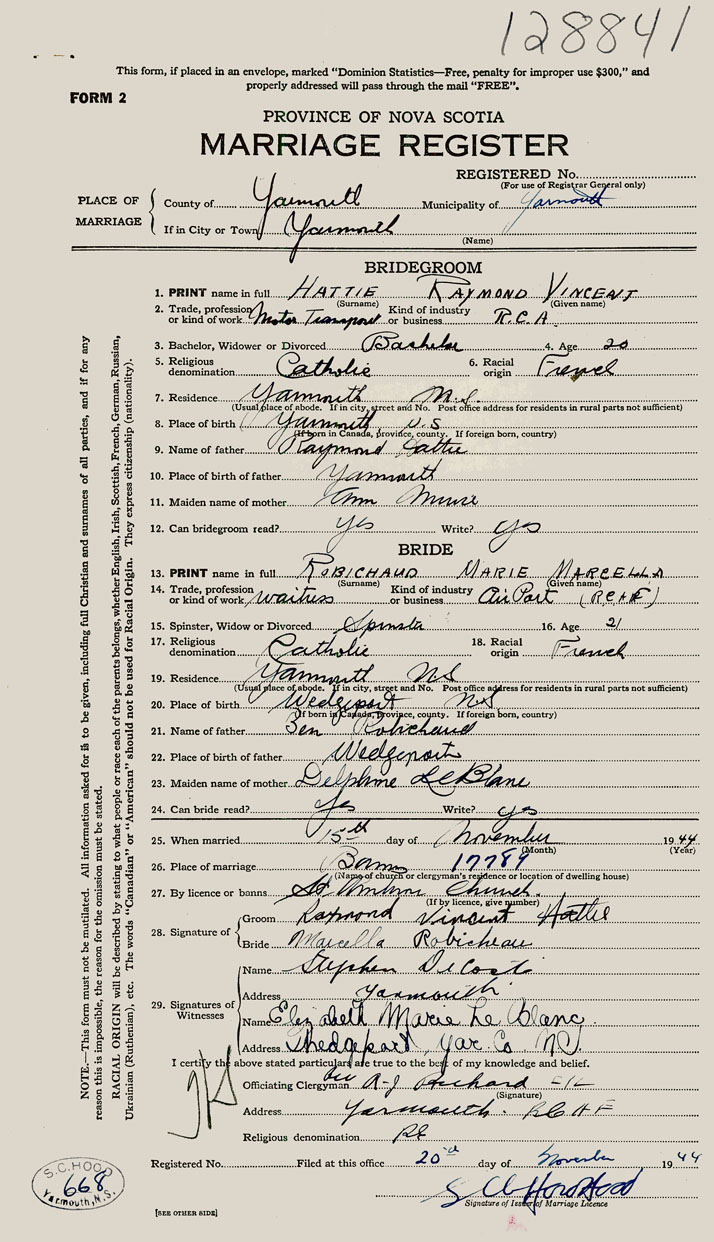 128841
This form, if placed in an envelope, marked "Dominion Statistics—Free, penalty for improper use $300," and
properly addressed will pass through the mail "FREE".
FORM 2
PROVINCE OF NOVA SCOTIA
MARRIAGE REGISTER
REGISTERED No.
(For use of Registrar General only)
PLACE OF MARRIAGE
County of Yarmouth Municipality of Yarmouth
If in City or Town Yarmouth
(Name)
BRIDEGROOM
1. PRINT name in full HATTIE RAYMOND VINCENT
(Surname) (Given name)
2. Trade, profession or kind of work Motor Transport Kind of industry or business R.C.A.
3. Bachelor, Widower or Divorced Bachelor 4. Age 20
5. Religious denomination Catholic 6. Racial origin French
7. Residence Yarmouth N.S.
(Usual place of abode. If in city, street and No. Post office address for residents in rural parts not sufficient)
8. Place of birth Yarmouth, N.S
(If born in Canada, province, county. If foreign born, country)
9. Name of father Raymond Hattie
10. Place of birth of father Yarmouth
11. Maiden name of mother Ann Muise
12. Can bridegroom read? yes Write? yes
BRIDE
13. PRINT name in full ROBICHAUD MARIE MARCELLA
(Surname) (Given name)
14. Trade, profession or kind of work waitress Kind of industry or business Air Port (RCAF)
15. Spinster, Widow or Divorced Spinster 16. Age 21
17. Religious denomination Catholic 18. Racial origin French
19. Residence Yarmouth NS
(Usual place of abode. If in city, street and No. Post office address for residents in rural parts not sufficient)
20. Place of birth Wedgeport NS
(If born in Canada, Province, county. If foreign born, country)
21. Name of father Ben Robichaud
22. Place of birth of father Wedgeport
23. Maiden name of mother Delphine LeBlanc
24. Can bride read? yes Write? yes
25. When married 15th day of November 1944
(Month) (Year)
26. Place of marriage Banns 17789
(Name of church or clergyman's residence or location of dwelling house)
27. By licence or banns St Ambrose Church.
(If by licence, give number)
28. Signature of
Groom Raymond Vincent Hattie
Bride Marcella Robicheau
29. Signatures of Witnesses
Name Stephen DeCoste
Address Yarmouth
Name Elizabeth Marie Le Blanc
Address Wedgeport, Yar. Co NS.
I certify the above stated particulars are true to the best of my knowledge and belief.
Officiating Clergyman
(Signature)
Address Yarmouth. RCAF
Religious denomination RC
Registered No. Filed at this office 20th day of November 1944
Signature of Issuer of Marriage Licence
[SEE OTHER SIDE]
S.C. HOOD
668
Yarmouth, N.S.
NOTE.—This form must not be mutilated. All information asked for is to be given, including full Christian and surnames of all parties, and if for any
reason this is impossible, the reason for the omission must be stated.
RACIAL ORIGIN will be described by stating to what people or race each of the parents belongs, whether English, Irish, Scottish, French, German, Russian,
Ukrainian (Ruthenian), etc. The words "Canadian" or "American" should not be used for Racial Origin. They express citizenship (nationality).